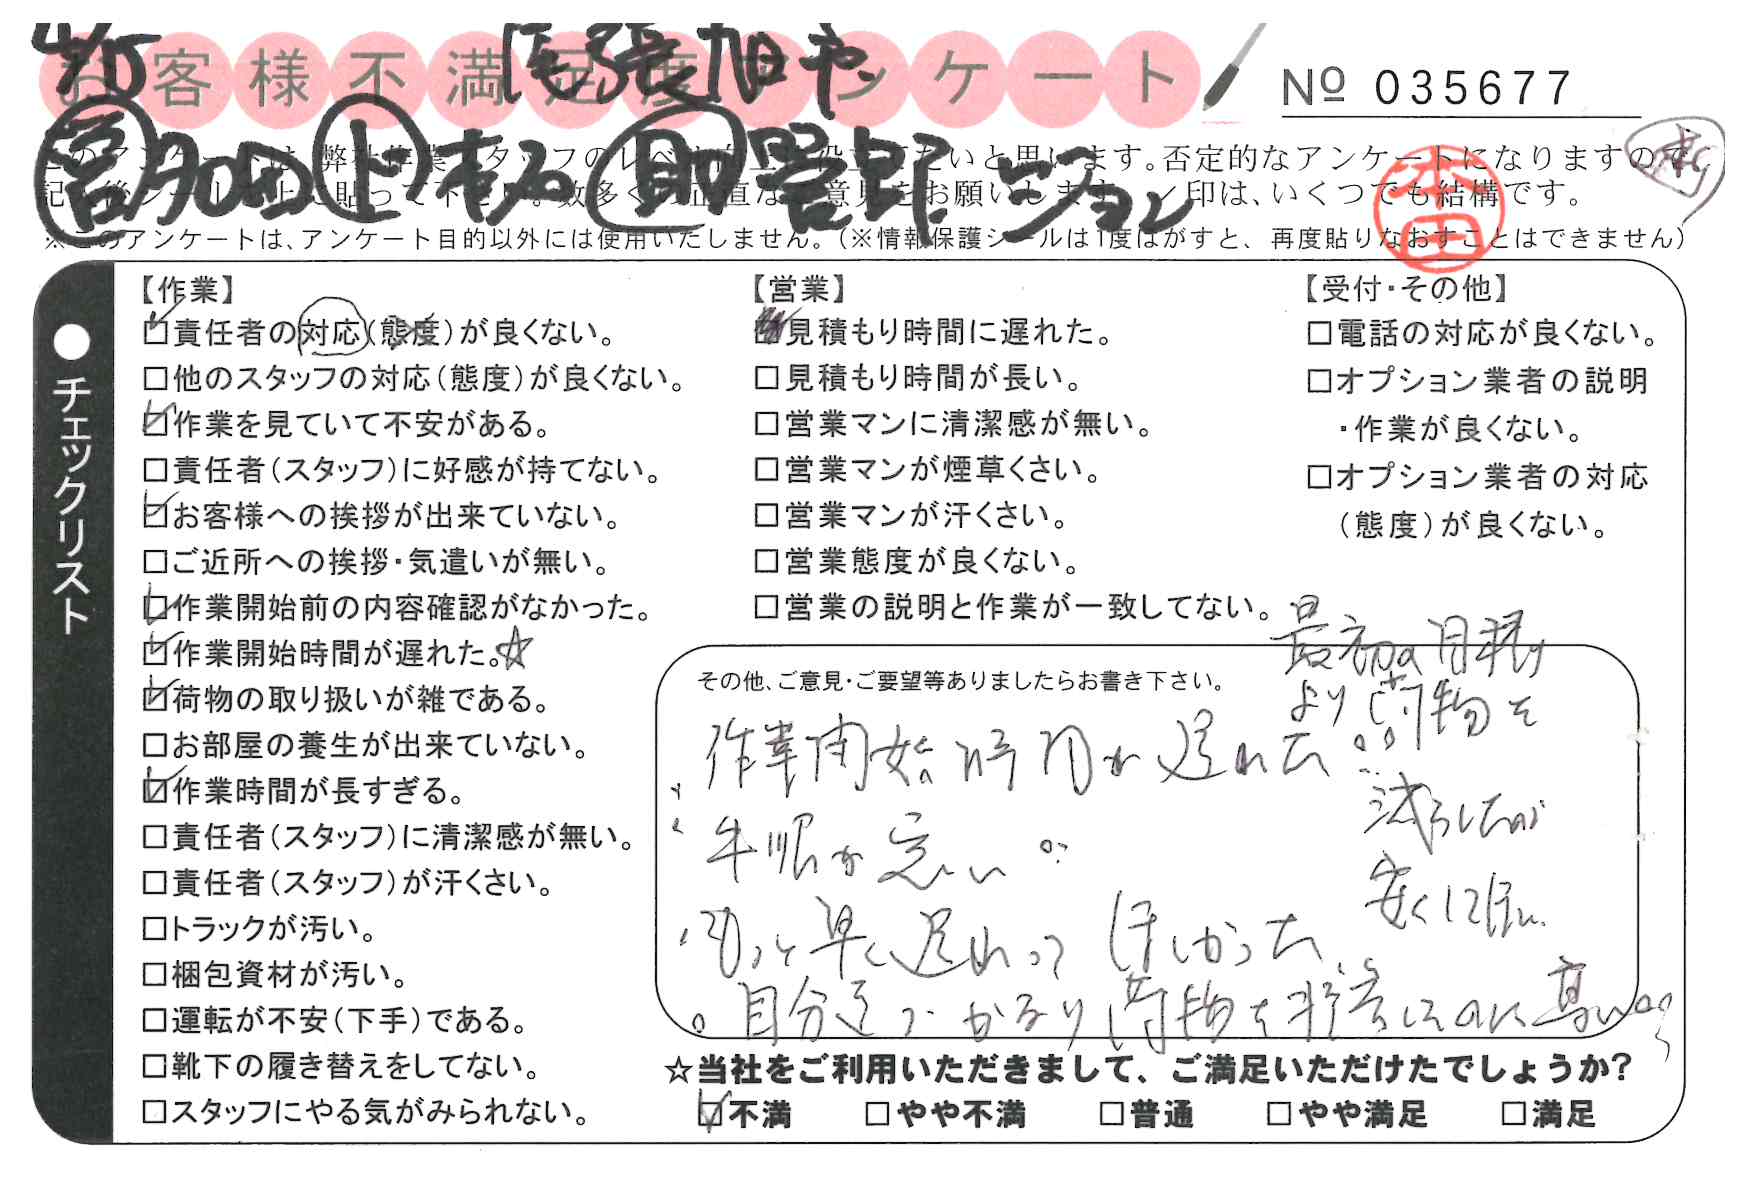 4/15 尾張旭や
お客様不満足度アンケート
№ 035677
営 加田 上 有名 助 菅野 ション
このアンケートは、弊社作業スタッフのレベル向上に役立てたいと思います。否定的なアンケートになりますので、
記入後シールを上に貼って下さい。数多くの正直なご意見をお願いします。✓印は、いくつでも結構です。
※このアンケートは、アンケート目的以外には使用いたしません。(※情報保護シールは1度はがすと、再度貼りなおすことはできません)
本田
チェックリスト
【作業】
責任者の対応(態度)が良くない。
他のスタッフの対応(態度)が良くない。
作業を見ていて不安がある。
責任者(スタッフ)に好感が持てない。
お客様への挨拶が出来ていない。
ご近所への挨拶・気遣いが無い。
作業開始前の内容確認がなかった。
作業開始時間が遅れた。☆
荷物の取り扱いが雑である。
お部屋の養生が出来ていない。
作業時間が長すぎる。
責任者(スタッフ)に清潔感が無い。
責任者(スタッフ)が汗くさい。
トラックが汚い。
梱包資材が汚い。
運転が不安(下手)である。
靴下の履き替えをしてない。
スタッフにやる気がみられない。
【営業】
見積もり時間に遅れた。
見積もり時間が長い。
営業マンに清潔感が無い。
営業マンが煙草くさい。
営業マンが汗くさい。
営業態度が良くない。
営業の説明と作業が一致してない。
【受付・その他】
電話の対応が良くない。
オプション業者の説明
・作業が良くない。
オプション業者の対応
(態度)が良くない。
その他、ご意見・ご要望等ありましたらお書き下さい。
作業開始時間が遅れた。
手順が悪い。
もっと早く
ほしかった
自分達でかなり荷物を
のに高い。
最初の見積り
より荷物を
減らしたが
安くして欲しい。
☆当社をご利用いただきまして、ご満足いただけたでしょうか?
不満 やや不満 普通 やや満足 満足